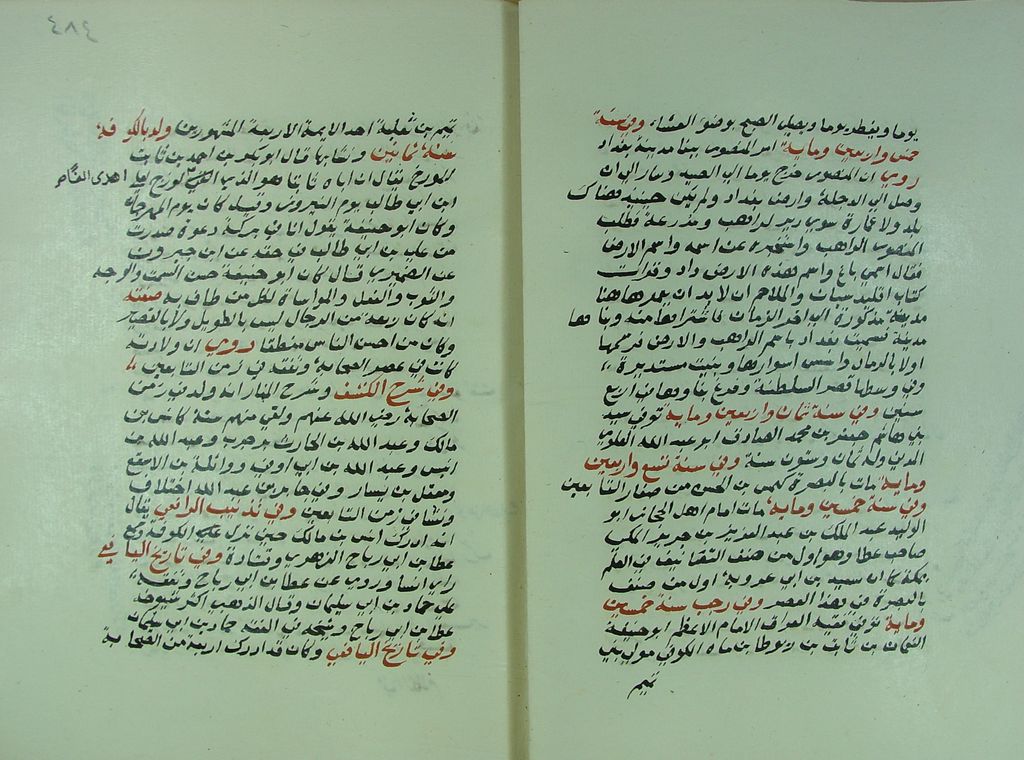 يوما ويفطر يوما ويصلي الصبح بوضوء العشاء وفي سنة
خمس واربعين وماية امر المنصور ببنا مدينة بغداد
روي ان المنصور خرج يوما الي الصيد وسار الي ان
وصل الي الدجلة وارض بغداد ولم يكن حينيذ هناك
بلد ولا عمارة سوي دير لراهب ومزرعة فطلب
المنصور الراهب واستخبره عن اسمه واسم الارض
فقال اسمي باغ واسم هذه الارض داد وقرات
كتاب اقليد سيات والملاحم ان لا بد ان يعمر هاهنا
مدينة مذكورة الي اخر الزمان فاشتراها منه وبناها
مدينة فسميت بغداد باسم الراهب والارض فرسمها
اولا بالرماد واسس اسوارها وبنيت مستديرة
وفي وسطها قصر السلطنة وفرغ بناوها في اربع
سنين وفي سنة ثمان واربعين وماية توفي سيد
بني هاشم جعفر بن محمد الصادق ابو عبد الله العلوي
المدني وله ثمان وستون سنة وفي سنة تسع واربعين
وماية مات بالبصرة كهمس بن الحسن من صغار التابعين
وفي سنة خمسين وماية مات امام اهل الحجاز ابو
الوليد عبد الملك بن عبد العزيز بن جريج المكي
صاحب عطا وهو اول من صنف التصانيف في العلم
بمكة كما ان سعيد بن ابي عروبة اول من صنف
بالبصرة في هذا العصر وفي رجب سنة خمسين
وماية توفي فقيه العراق الامام الاعظم ابو حنيفة
النعمان بن ثابت بن زوطا بن ماه الكوفي مولي بني
تيم
٤٨٤
تيم بن ثعلبة احد الايمة الاربعة المشهورين ولد بالكوفة
سنة ثمانين ونشا بها قال ابو بكر بن احمد بن ثابت
المورخ يقال ان اباه ثابتا هو الذي اهدي الفالوزج لعلي
ابن ابي طالب يوم النيروز وقيل كان يوم المهرجان
وكان ابو حنيفة يقول انا في بركة دعوة صدرت
من علي بن ابي طالب في حقه عن ابن جبروت
عن الضميري قال كان ابو حنيفة حسن السمت والوجه
والثوب والفعل والمواساة لكل من طاف به صفته
انه كان ربعة من الرجال ليس بالطويل ولا بالقصير
وكان من احسن الناس منطقا روي ان ولادته
كانت في عصر الصحابة وتفقه في زمن التابعين
وفي شرح الكشف وشرح المنار انه ولد في زمن
الصحابة رضي الله عنهم ولقي منهم ستة كانس بن
مالك وعبد الله بن الحارث بن جزء وعبد الله بن
انيس وعبد الله بن ابي اوفي ووائلة بن الاسقع
ومعقل بن يسار وفي جابر بن عبد الله اختلاف
ونشا في زمن التابعين وفي تذنيب الرافعي يقال
انه ادرك انس بن مالك حين نزل عليه الكوفة وسمع
عطا بن ابي رباح الزهري وقتادة وفي تاريخ اليافعي
راي انسا وروي عن عطا بن ابي رباح وتفقه
علي حماد بن ابي سليمان وقال الذهبي اكثر شيوخه
عطا بن ابي رباح وشيخه في الفقه حماد بن ابي سليمان
وفي تاريخ اليافعي وكان قد ادرك اربعة من الصحابة